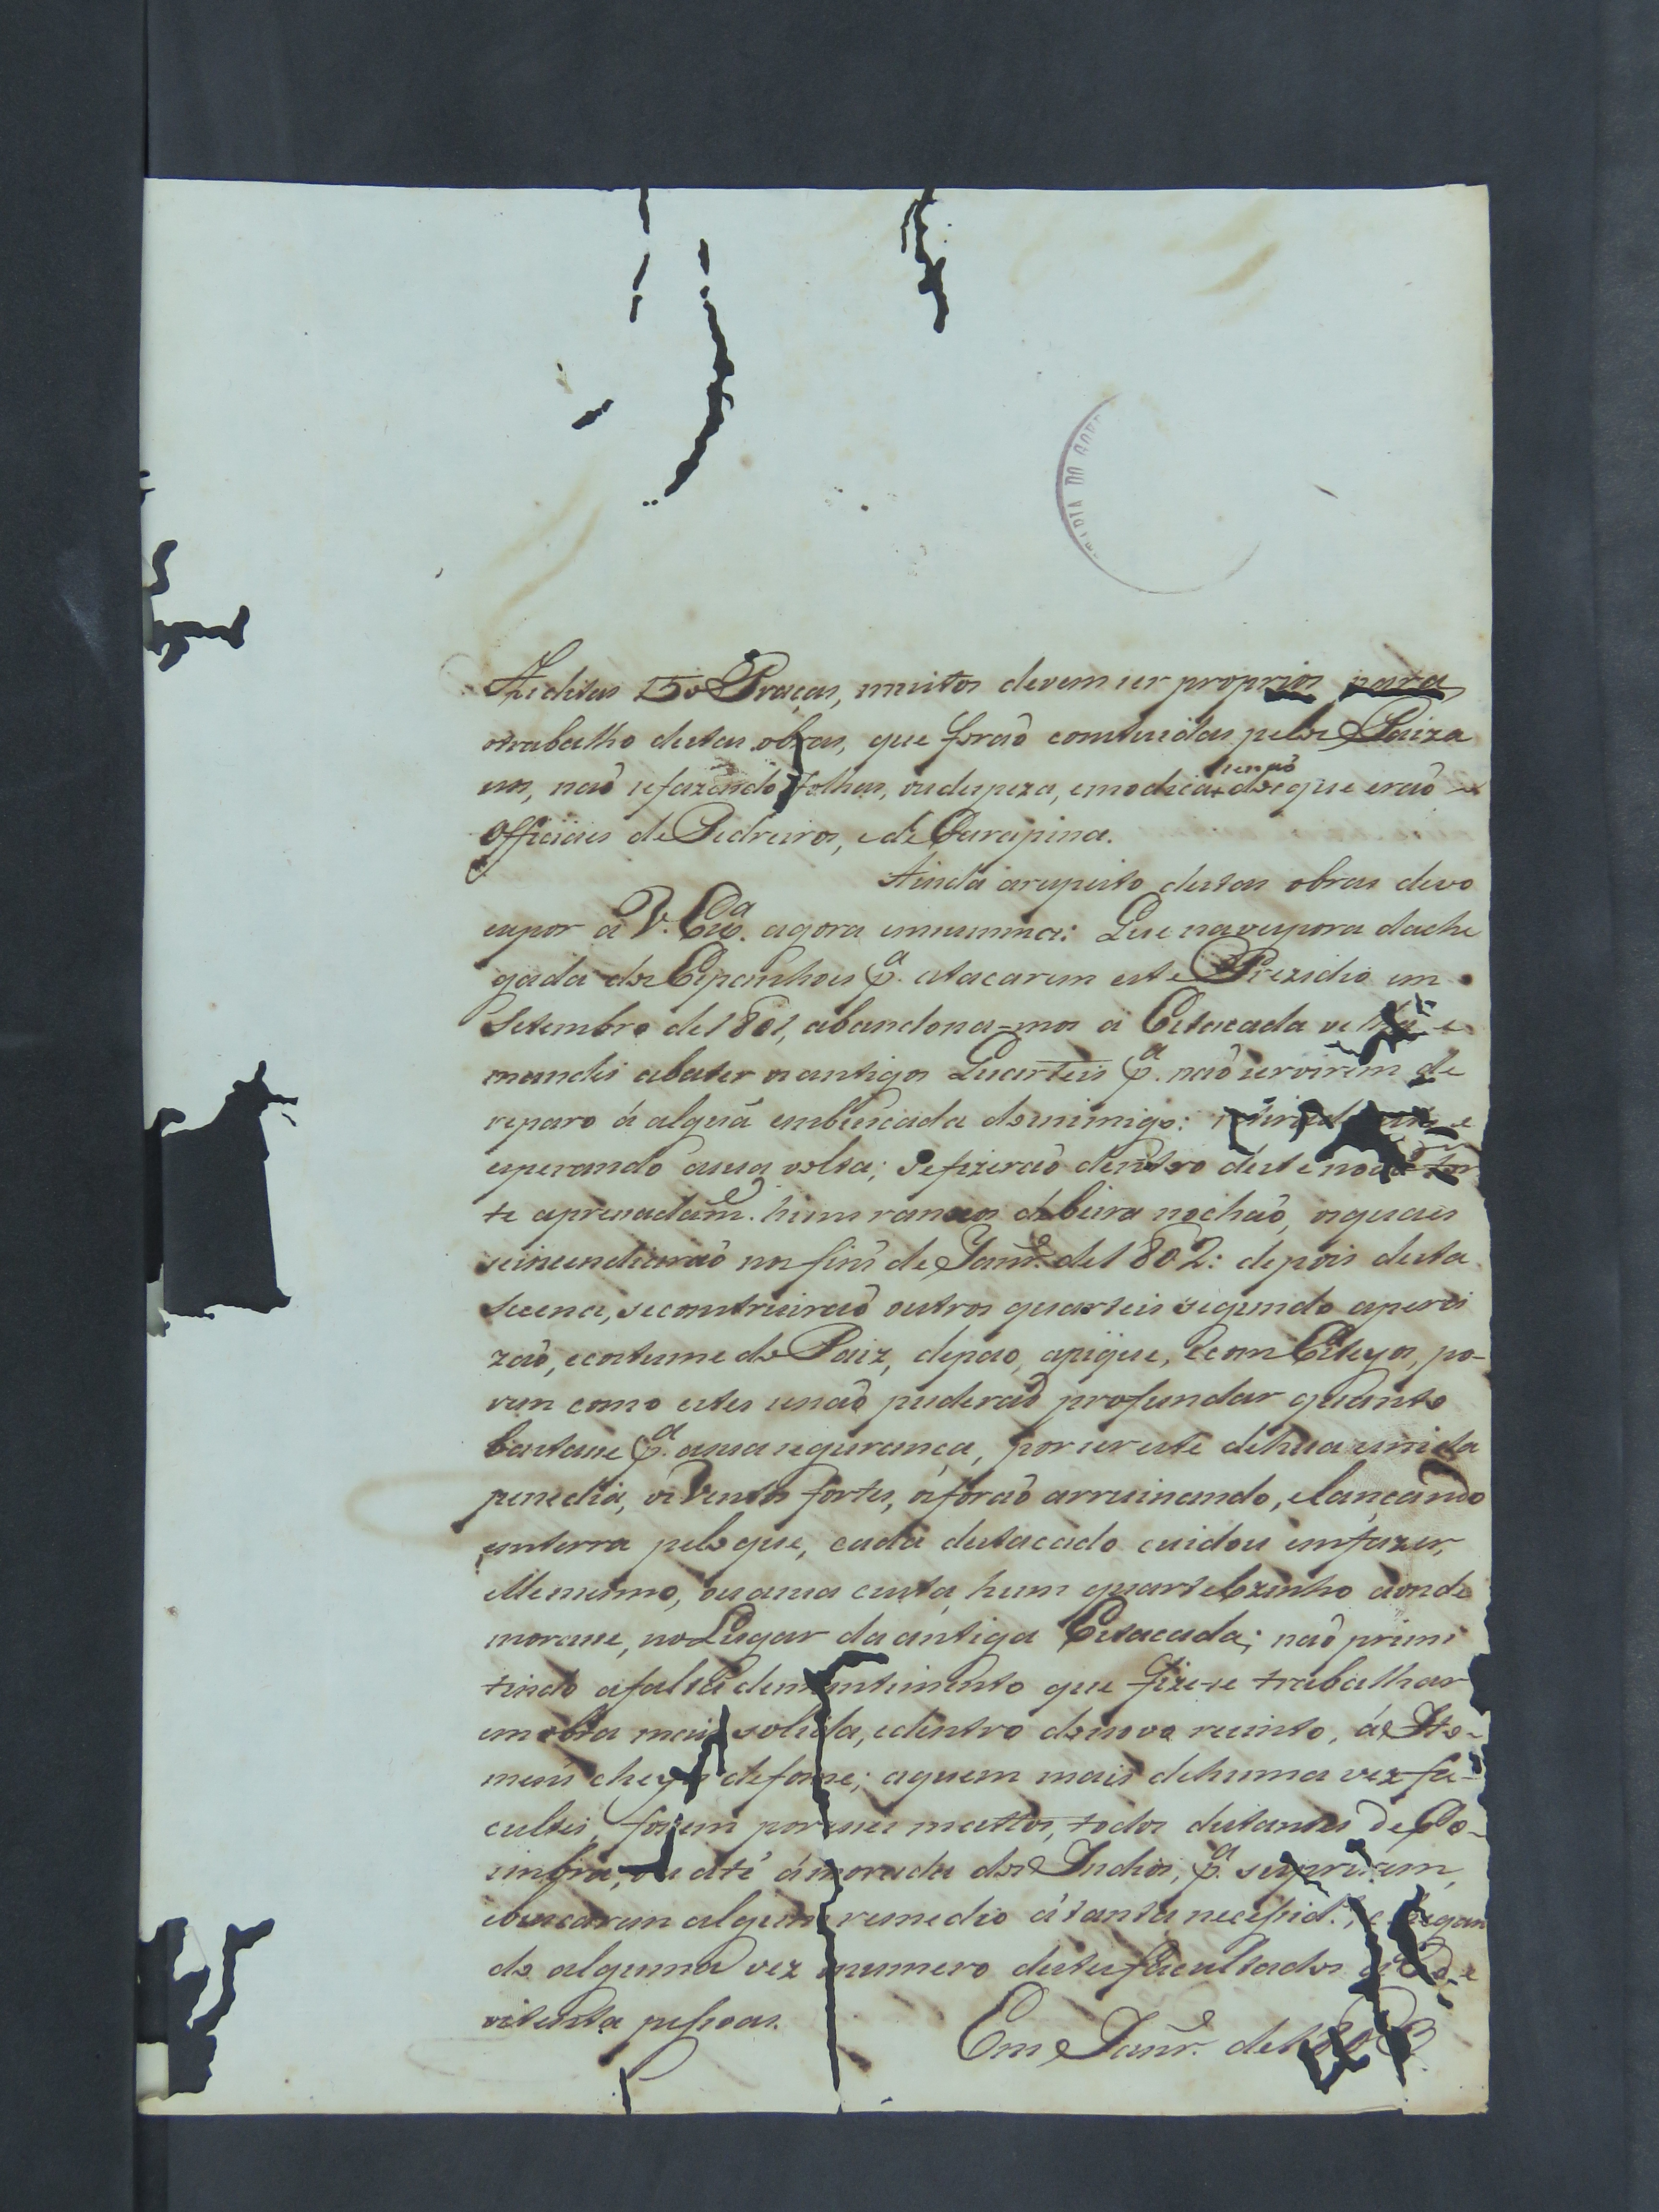 RIA DO GOVE
As ditas 150 Praças, muitos devem ser proprios para
otrabalho destas obras, que forão construidas pelos Paiza
nos, não sefazendo folhas, ou despeza, emodica senão dos que erão
Officiaes de Pedreiros, e de Carapina.
Ainda arespeito destas obras devo
expor á V. Exa. agora emsumma: Que navespora dache
gada dos Espanhoes pa. atacarem este Prezidio em
Setembro de 1801, abandona-mos a Estacada velha e
mandei abater os antigos Quarteis pa. não servirem de
reparo á alguã embuscada do inimigo: e
esperando asua volta; Sefizerão dentro deste novo For
te apresadame. huns ranxos de beira no chão, os quais
seincendiarão nos fins de Janro. de 1802: depois desta
Scena, seconstruirão outros quarteis segundo aperci
zão, ecostume do Paiz, depáo, apique, ecom Esteyos, po-
rem como estes senão puderão profundar quanto
bastasse pa. asua segurança, por ser este dehua unida
penedia, os Ventos fortes, os forão arruinando, elançando
emterra pelo que, cada destacado cuidou emfazer,
elle mesmo, ou asua custa, hum quartelzinho aonde
morasse, no Lugar da antiga Estacada; não premi
tindo afalta demantimento que fizese trabalhar
em obra mais solida, edentro do novo recinto, á Ho-
mens cheyos defome; aquem mais dehuma vez fa-
cultei, forem por esses mattos, todos distantes de Co-
imbra, ou até á morada dos Indios, pa. suprirem,
ebuscarem algum remedio átanta necessid.e, e chegan
do alguma vez onumero destes facultados a
oitenta pessoas.
Em Janro. de 1803